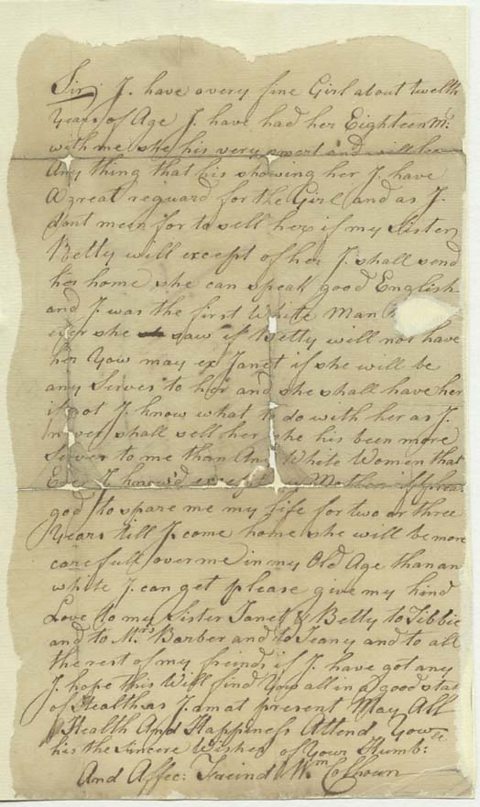 Sir J. have a very fine Girl about twelth
Years of Age J. have had her Eighteen Mts:
with me she his very smart and will
Any thing that his showing her J. have
A great reguard for the Girl and as J.
dont mein for to sell her if my Sister
Betty will except of her J. shall send
her home she can speak good English
and J. was the first White Man
ever she saw if Betty will not have
her Yow may ex Janet if she will be
any Server to her and she shall have her
if not J. know what to do with her as J.
never shall sell her she his been more
Server to me than Any White Women that
Ever J. know'd except my Mother if
god to spare me my life for two or three
Years till J. come home she will be more
carefull over me in my Old Age than an
white J. can get please give my kind
Love to my Sister Janet & Betty to Tibbie
and to Mrs Barber and to Jeany and to all
the rest of my freinds if J. have got any
J. hope this Will find Yow all in a good stat
of Health as J. am at present May All
Health And Happiness Attend Yow
his the Sincere Wishes of Your Humb:
And Affec: Freind Wm Colhoun